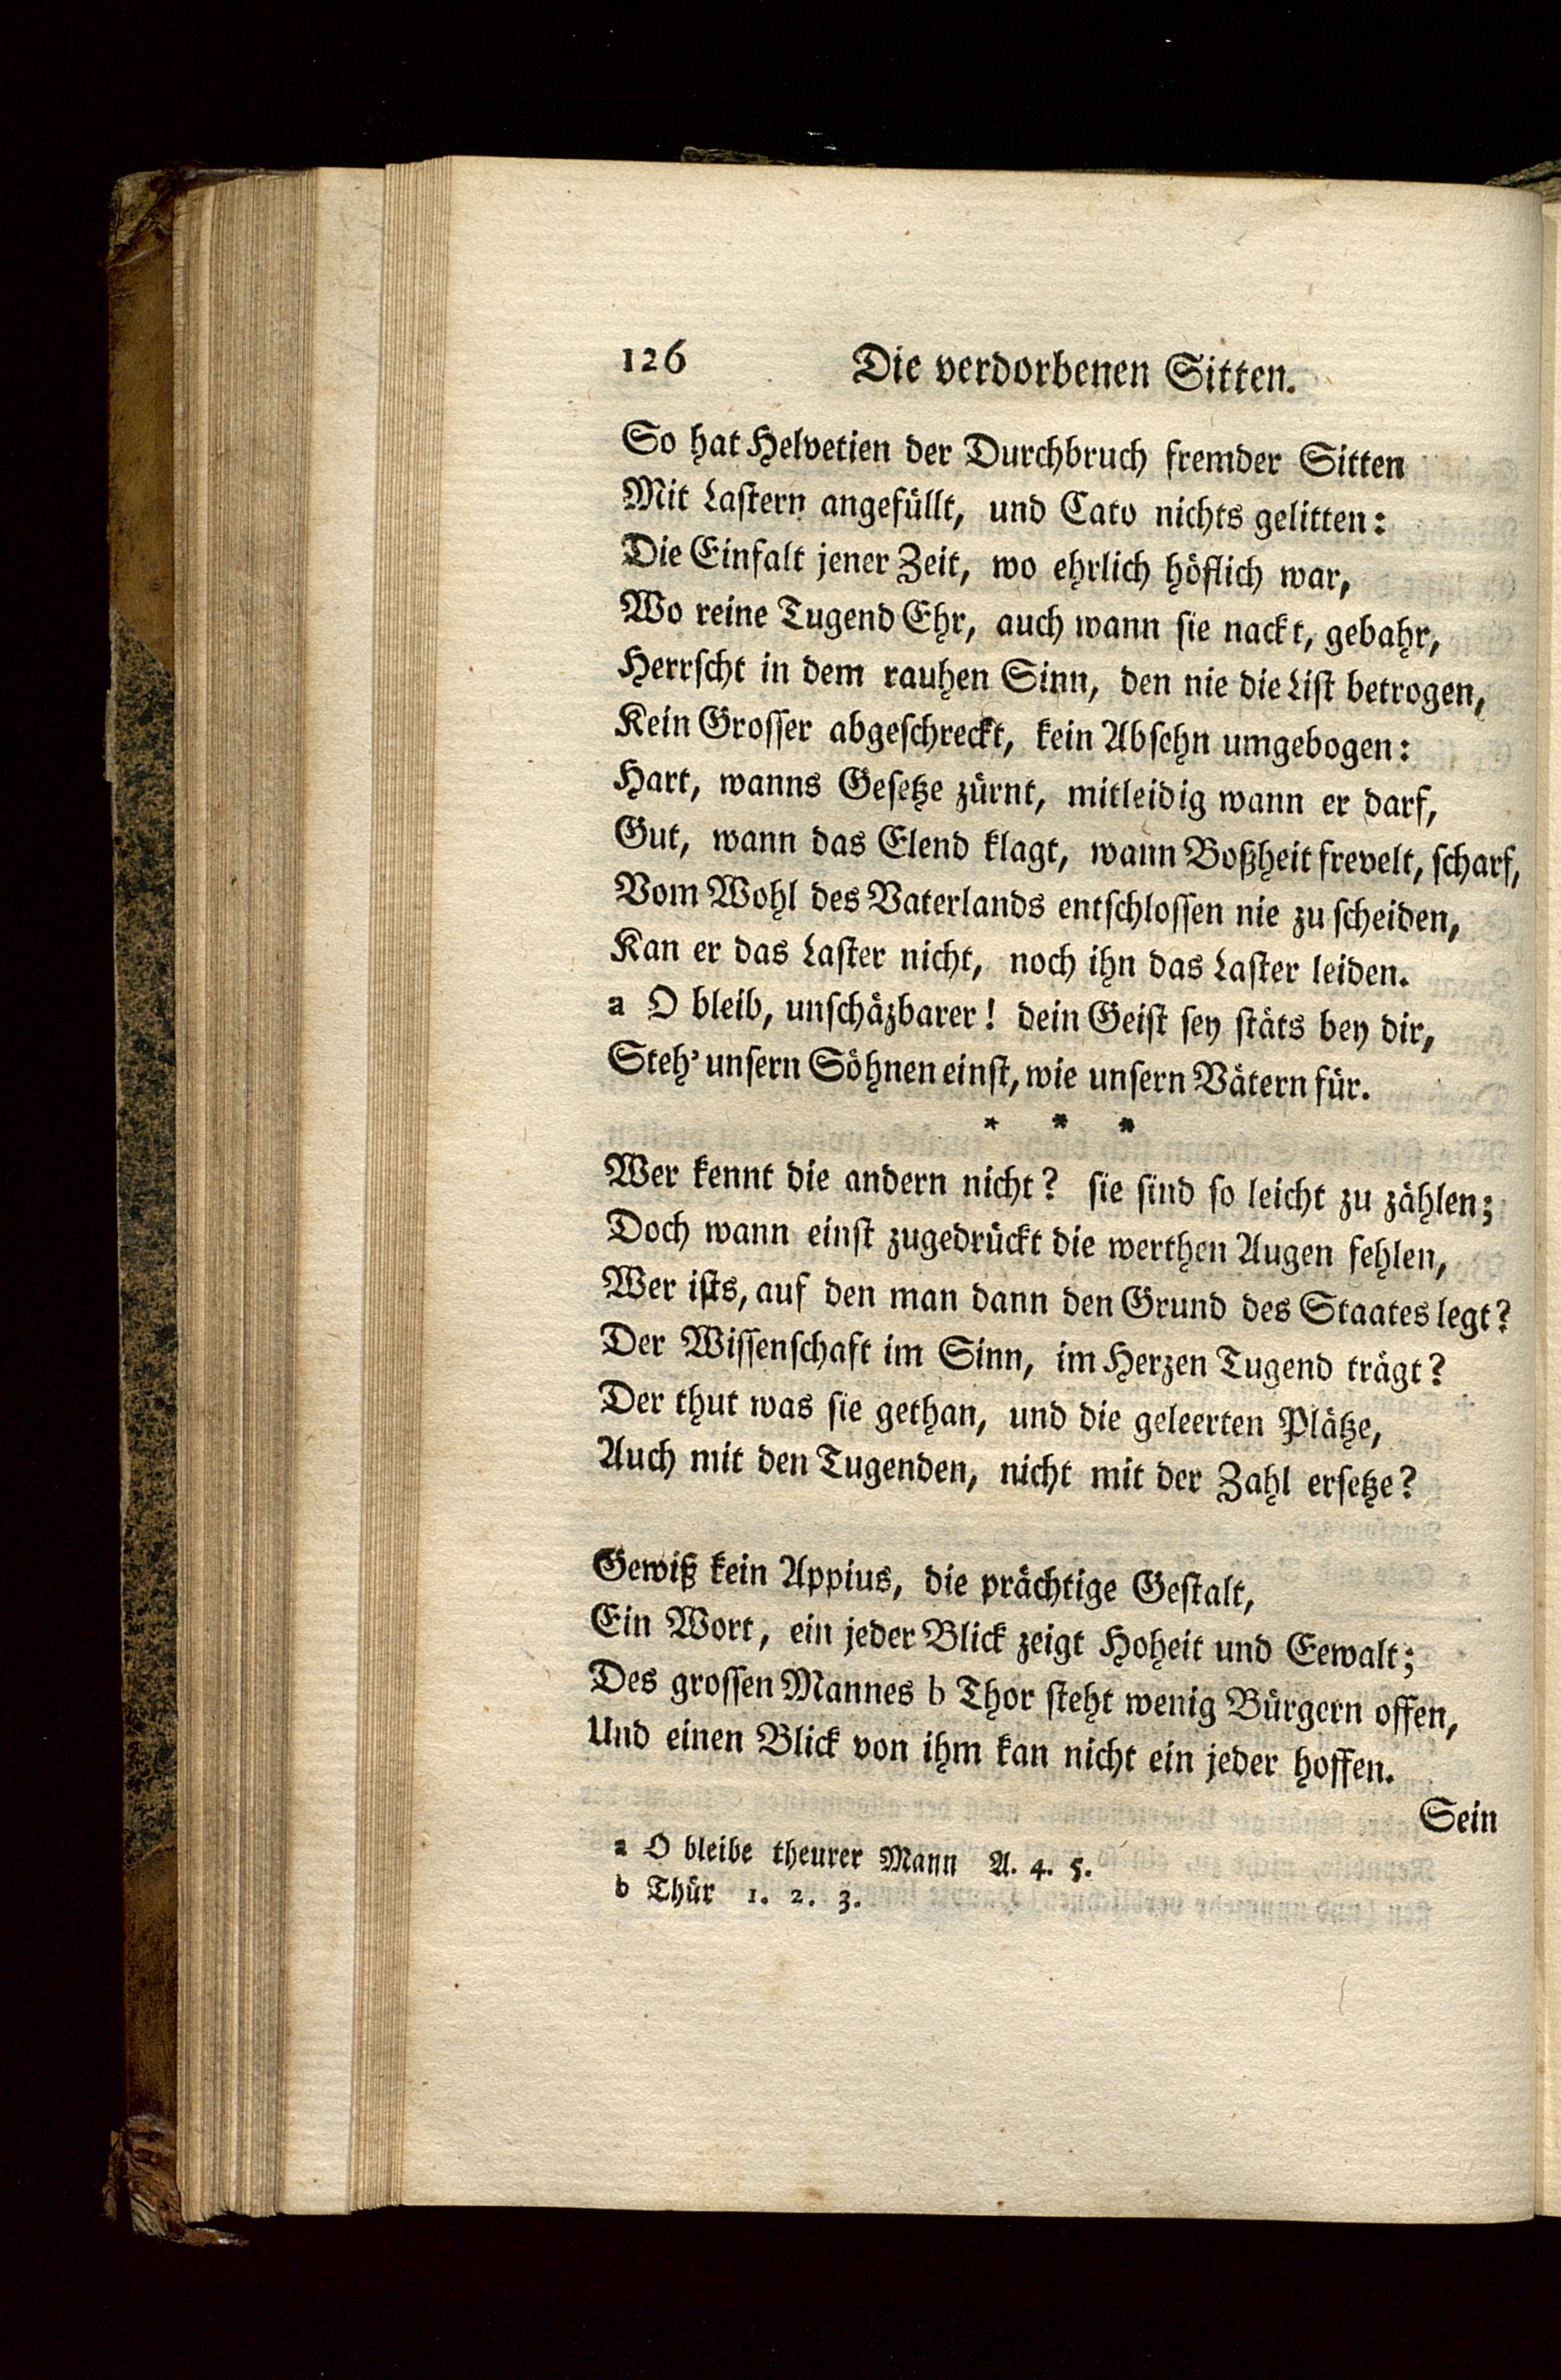 126 Die verdorbenen Sitten.
So hat Helvetien der Durchbruch fremder Sitten
Mit Lastern angefüllt, und Cato nichts gelitten:
Die Einfalt jener Zeit, wo ehrlich höflich war,
Wo reine Tugend Ehr, auch wann sie nackt, gebahr,
Herrscht in dem rauhen Sinn, den nie die List betrogen,
Kein Grosser abgeschreckt, kein Absehn umgebogen:
Hart, wanns Gesetze zürnt, mitleidig wann er darf,
Gut, wann das Elend klagt, wann Boßheit frevelt, scharf,
Vom Wohl des Vaterlands entschlossen nie zu scheiden,
Kan er das Laster nicht, noch ihn das Laster leiden.
a O bleib, unschäzbarer! dein Geist sey stäts bey dir,
Steh' unsern Söhnen einst, wie unsern Vätern für.
* * *
Wer kennt die andern nicht? sie sind so leicht zu zählen;
Doch wann einst zugedrückt die werthen Augen fehlen,
Wer ists, auf den man dann den Grund des Staates legt?
Der Wissenschaft im Sinn, im Herzen Tugend trägt?
Der thut was sie gethan, und die geleerten Plätze,
Auch mit den Tugenden, nicht mit der Zahl ersetze?
Gewiß kein Appius, die prächtige Gestalt,
Ein Wort, ein jeder Blick zeigt Hoheit und Eewalt;
Des grossen Mannes b Thor steht wenig Bürgern offen,
Und einen Blick von ihm kan nicht ein jeder hoffen.
Sein
a O bleibe theurer Mann A. 4. 5.
b Thür 1. 2. 3.